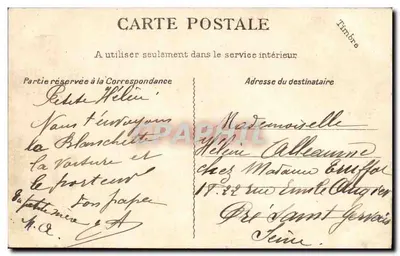 CARTE POSTALE
Timbre
A utiliser seulement dans le service intérieur
Partie réservée à la Correspondance
Adresse du destinataire
Petite Hélène
Nous t'envoyons
la Blanchette
la voiture et
le
ton papa
et A
Mademoiselle
Hélène Alleaume
chez Madame
18-22 rue Emile Augier
Pré Saint Gervais
Seine
CARTPOSTALE